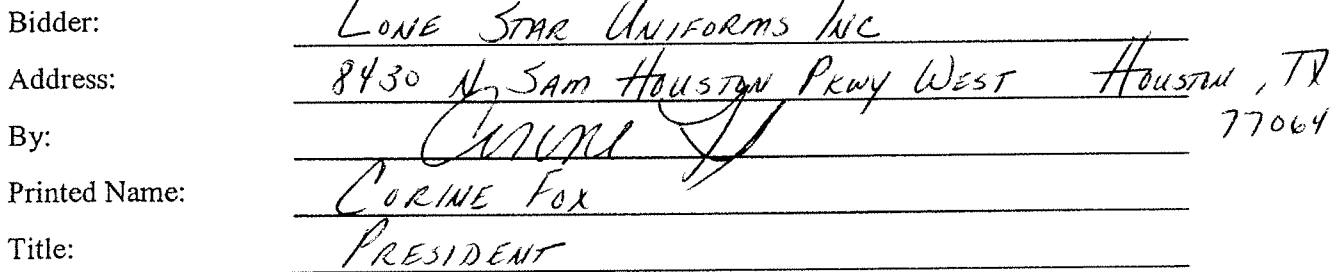 Bidder: LONE STAR UNIFORMS INC
Address: 8430 N SAM HOUSTON PKWY WEST HOUSTON, TX
77064
By: Corine
Printed Name: CORINE FOX
Title: PRESIDENT